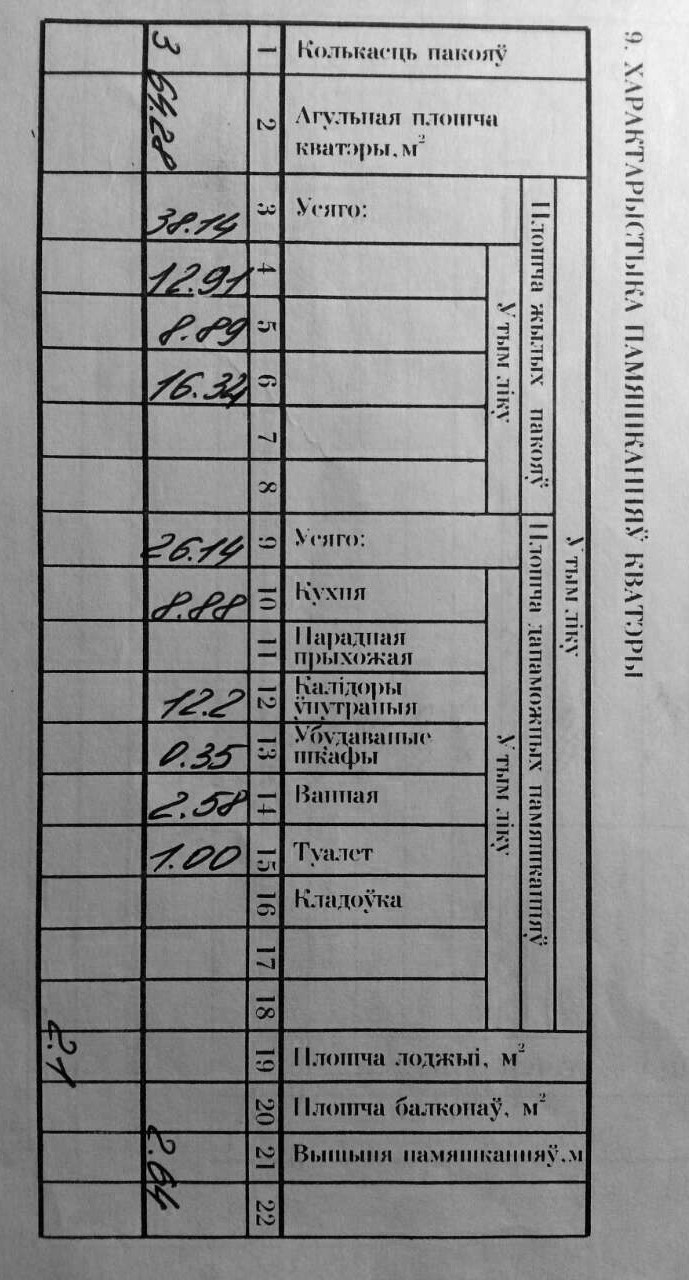 9. ХАРАКТАРЫСТЫКА ПАМЯШКАННЯЎ КВАТЭРЫ
1 Колькасць пакояў
3
2 Агульная плошча
кватэры, м²
64.28
У тым ліку
Плошча жылых пакояў
3 Усяго:
38.14
У тым ліку
4
12.91
5
8.89
6
16.34
7
8
Плошча дапаможных памяшканняў
9 Усяго:
26.14
У тым ліку
10 Кухня
8.88
11 Парадная
прыхожая
12 Калідоры
ўнутраныя
12.2
13 Убудаваныя
шкафы
0.35
14 Ванная
2.58
15 Туалет
1.00
16 Кладоўка
17
18
19 Плошча лоджыі, м²
2.1
20 Плошча балконаў, м²
21 Вышыня памяшканняў,м
2.64
22